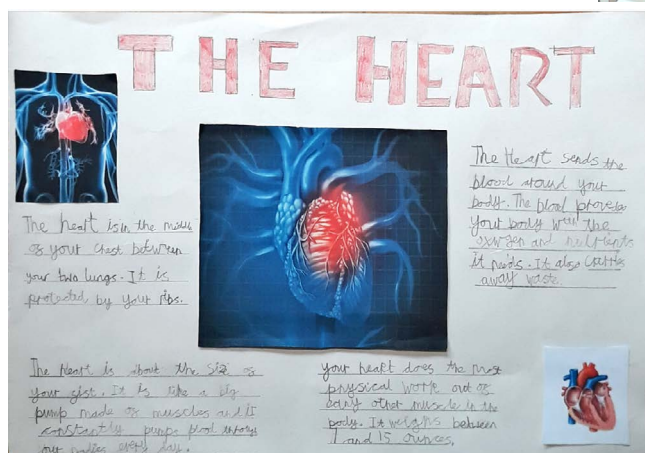 THE HEART
The heart is in the middle
of your chest between
your two lungs. It is
protected by your ribs.
The Heart sends the
blood around your
body. The blood provides
your body with the
oxwgen and nutrients
it needs. It also carries
away waste
The heart is about the size of
your fist. It is like a big
pump made of muscles and it
constantly pumps blood through
our bodies every day.
your heart does the most
physical work out of
any other muscle in the
body. It weighs between
7 and 15 ounces.